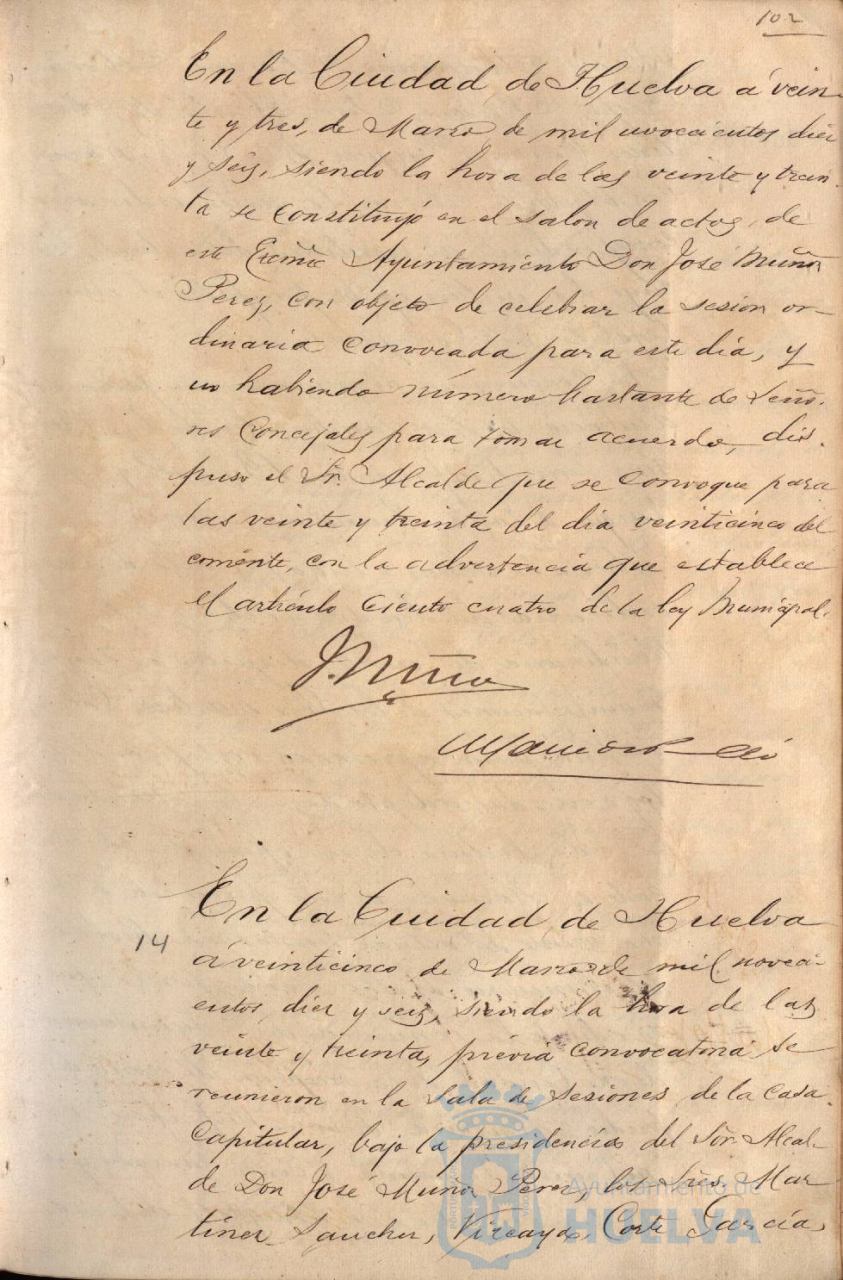 102
En la Ciudad de Huelva á vein
te y tres, de Marzo de mil novecientos diez
y seis, siendo la hora de las veinte y trein-
ta se constituyó en el salon de actos, de
este Excmo Ayuntamiento Don José Muñoz
Perez, con objeto de celebrar la sesion or-
dinaria convocada para este dia, y
no habiendo número bastante de Seño-
res Concejales para tomar acuerdo, dis-
puso el Sr. Alcalde que se convoque para
las veinte y treinta del dia veinticinco del
corriente, con la advertencia que establece
el artículo ciento cuatro de la ley Municipal.
J. Muñoz
14
En la Ciudad de Huelva
á veinticinco de Marzo de mil noveci-
entos diez y seis, siendo la hora de las
veinte y treinta, prévia convocatoria se
reunieron en la Sala de Sesiones de la Casa
Capitular, bajo la presidencia del Sor. Alcal-
de Don José Muñoz Perez, los Sres. Mar
tinez Sanchez, Vizcaya, Corte Garcia,
Ayuntamiento de
HUELVA